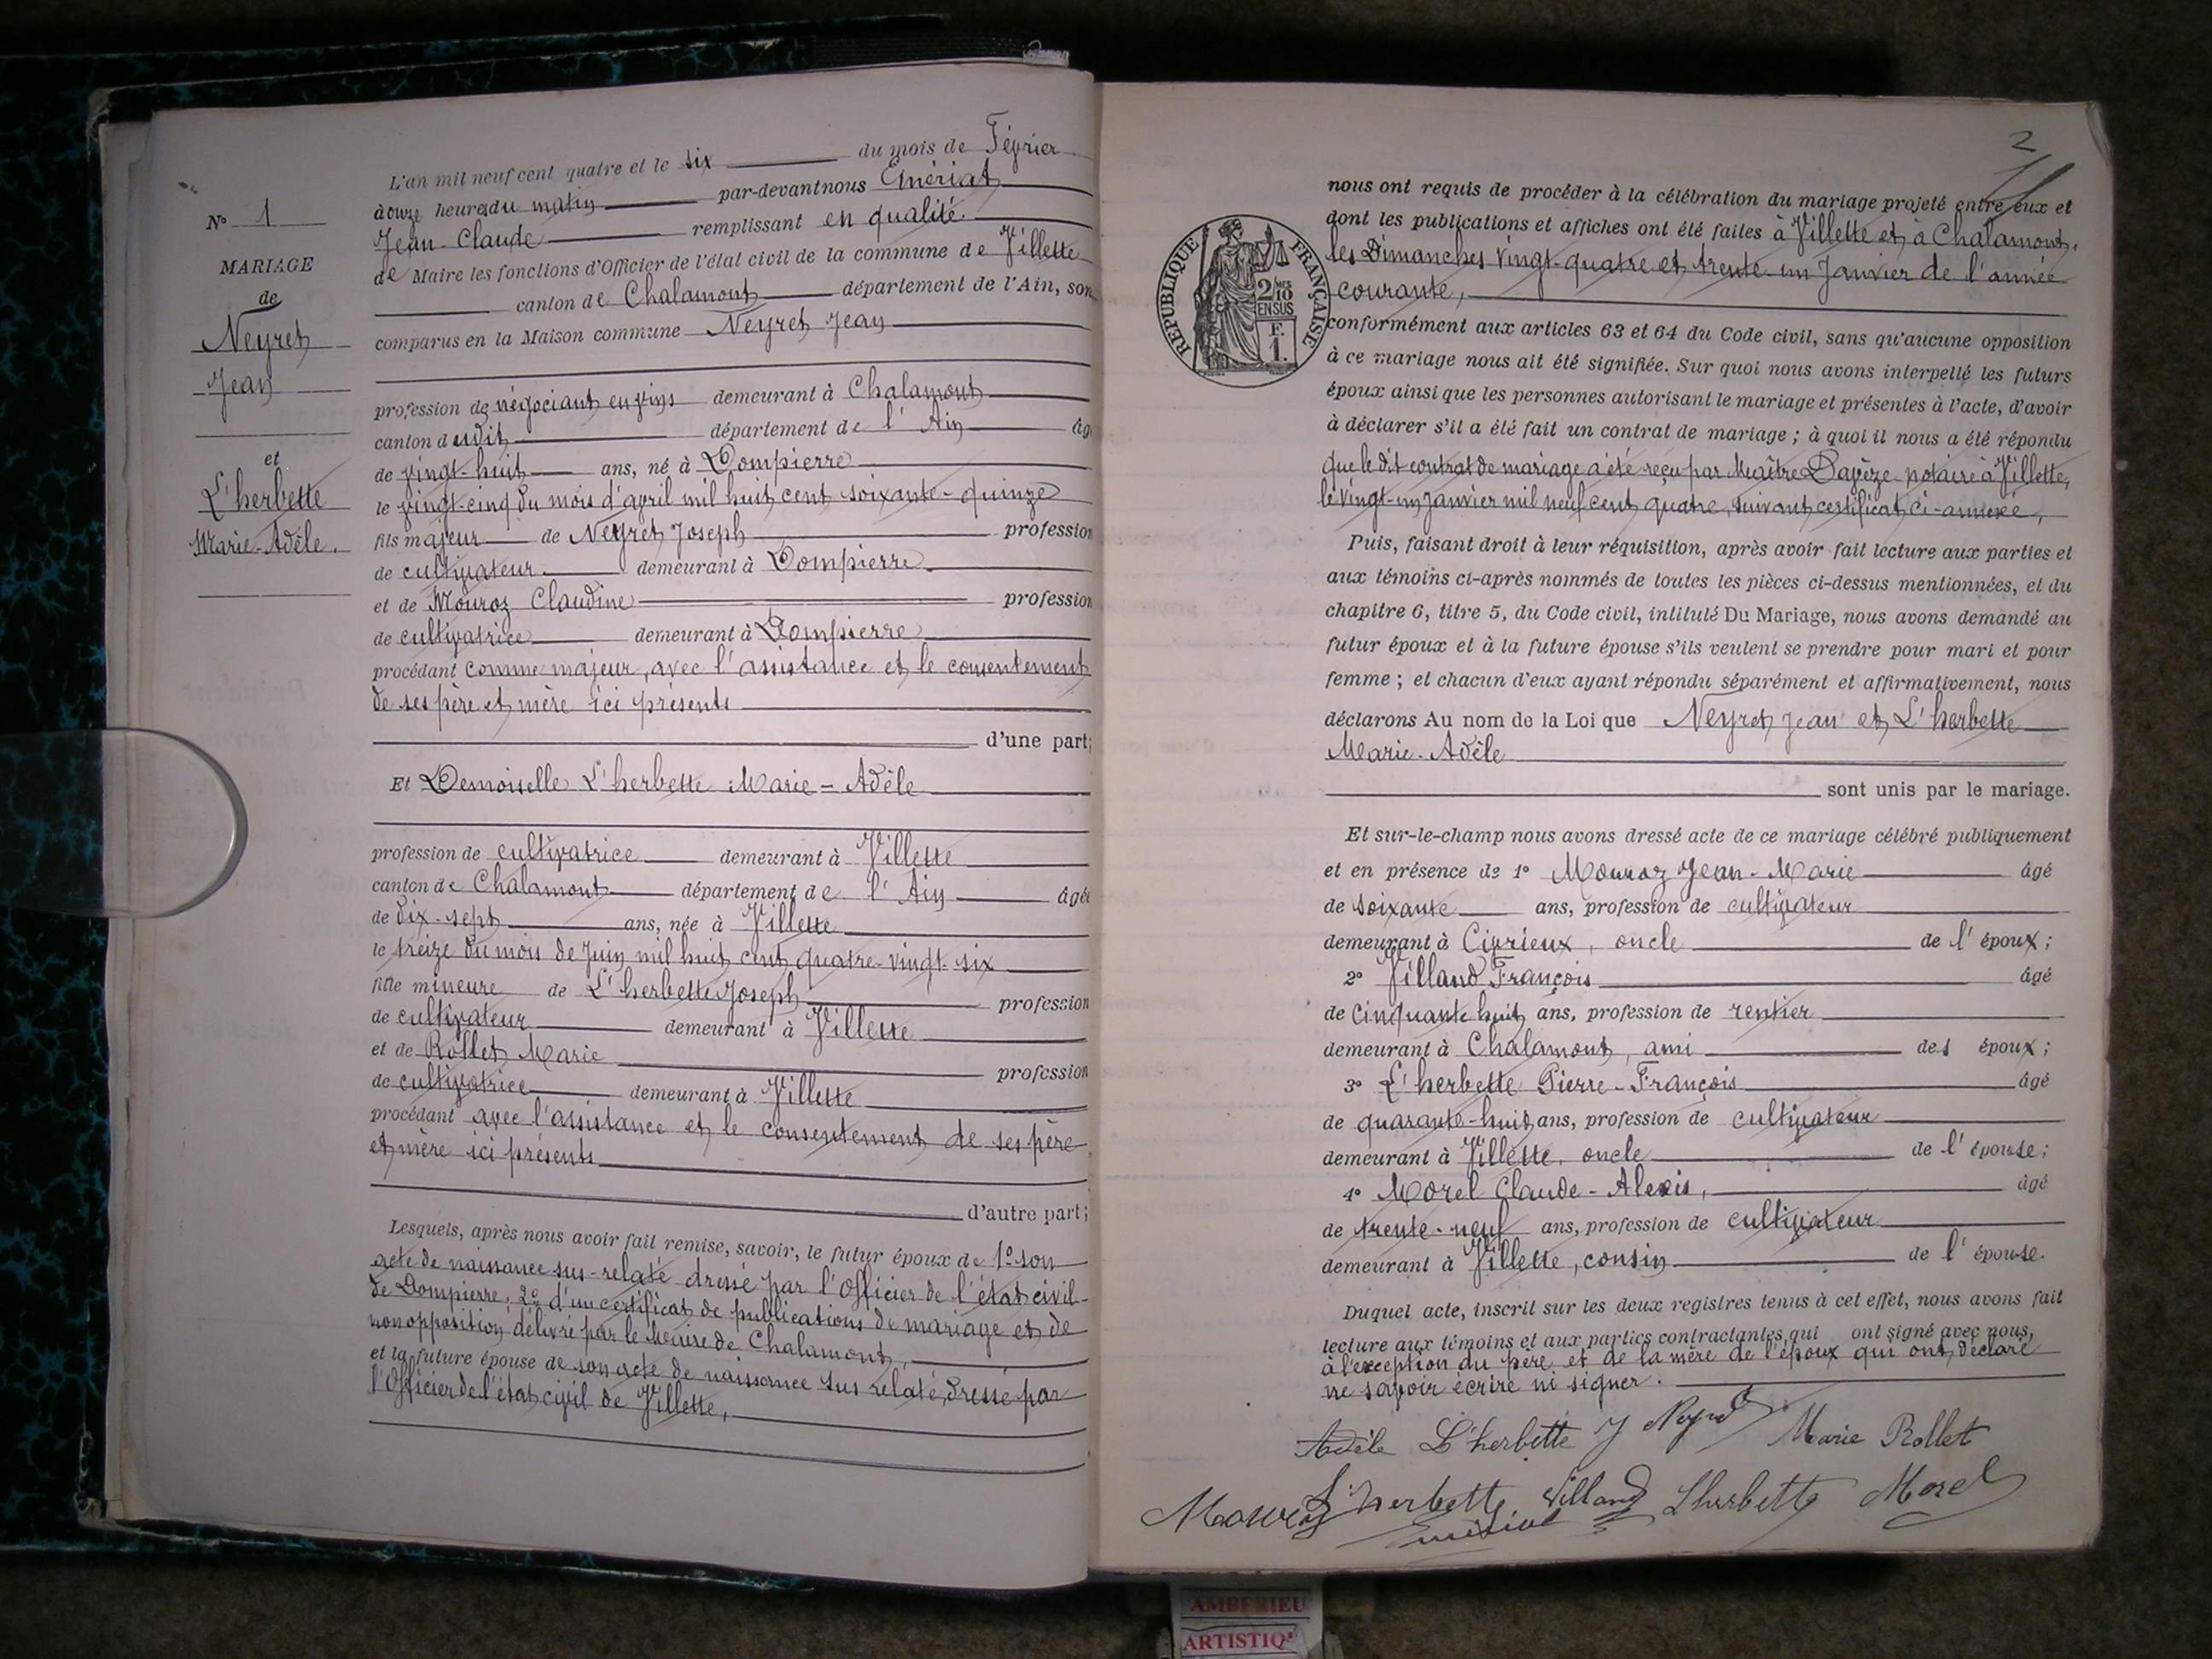 N° 1
MARIAGE
de
Neyret
Jean
et
L'herbette
Marie-Adèle.
L'an mil neuf cent quatre et le six du mois de Février
à onze heures du matin par-devant nous Émériat
Jean-Claude remplissant en qualité
de Maire les fonctions d'Officier de l'état civil de la commune de Villette
canton de Chalamont département de l'Ain, son
comparus en la Maison commune Neyret Jean
profession de négociant en vins demeurant à Chalamont
canton dudit département de l'Ain âg
de vingt-huit ans, né à Dompierre
le vingt-cinq du mois d'avril mil huit cent soixante-quinze
fils majeur de Neyret Joseph profession
de cultivateur demeurant à Dompierre
et de Mouroz Claudine profession
de cultivatrice demeurant à Dompierre
procédant comme majeur, avec l'assistance et le consentement
de ses père et mère ici présents
d'une part;
Et Demoiselle L'herbette Marie-Adèle
profession de cultivatrice demeurant à Villette
canton de Chalamont département de l'Ain âgée
de dix-sept ans, née à Villette
le treize du mois de Juin mil huit cent quatre-vingt-six
fille mineure de L'herbette Joseph profession
de cultivateur demeurant à Villette
et de Rollet Marie profession
de cultivatrice demeurant à Villette
procédant avec l'assistance et le consentement de ses père
et mère ici présents
d'autre part;
Lesquels, après nous avoir fait remise, savoir, le futur époux de 1° son
acte de naissance sus-relaté dressé par l'Officier de l'état civil
de Dompierre, 2° d'un certificat de publications de mariage et de
non opposition délivré par le Maire de Chalamont,
et la future épouse de son acte de naissance sus relaté, dressé par
l'Officier de l'état civil de Villette,
2
RÉPUBLIQUE FRANÇAISE
2/10 MES
EN SUS
F.
1.
nous ont requis de procéder à la célébration du mariage projeté entre eux et
dont les publications et affiches ont été faites à Villette et à Chalamont,
les Dimanches vingt-quatre et trente-un Janvier de l'année
courante,
conformément aux articles 63 et 64 du Code civil, sans qu'aucune opposition
à ce mariage nous ait été signifiée. Sur quoi nous avons interpellé les futurs
époux ainsi que les personnes autorisant le mariage et présentes à l'acte, d'avoir
à déclarer s'il a été fait un contrat de mariage ; à quoi il nous a été répondu
que le dit contrat de mariage a été reçu par Maître notaire à Villette,
le vingt-un Janvier mil neuf cent quatre, suivant certificat ci-annexé,
Puis, faisant droit à leur réquisition, après avoir fait lecture aux parties et
aux témoins ci-après nommés de toutes les pièces ci-dessus mentionnées, et du
chapitre 6, titre 5, du Code civil, intitulé Du Mariage, nous avons demandé au
futur époux et à la future épouse s'ils veulent se prendre pour mari et pour
femme ; et chacun d'eux ayant répondu séparément et affirmativement, nous
déclarons Au nom de la Loi que Neyret Jean et L'herbette
Marie-Adèle
sont unis par le mariage.
Et sur-le-champ nous avons dressé acte de ce mariage célébré publiquement
et en présence de 1° Mouroz Jean-Marie âgé
de soixante ans, profession de cultivateur
demeurant à Civrieux, oncle de l'époux ;
2° Villand François âgé
de cinquante huit ans, profession de rentier
demeurant à Chalamont, ami des époux ;
3° L'herbette Pierre-François âgé
de quarante-huit ans, profession de cultivateur
demeurant à Villette, oncle de l'épouse ;
4° Morel Claude-Alexis, âgé
de trente-neuf ans, profession de cultivateur
demeurant à Villette, cousin de l'épouse.
Duquel acte, inscrit sur les deux registres tenus à cet effet, nous avons fait
lecture aux témoins et aux parties contractantes qui ont signé avec nous,
à l'exception du père et de la mère de l'époux qui ont déclaré
ne savoir écrire ni signer.
Adèle L'herbette J Neyret Marie Rollet
Mouroz L'herbette Villand Lherbette Morel
Émériat
AMBERIEU
ARTISTIQ